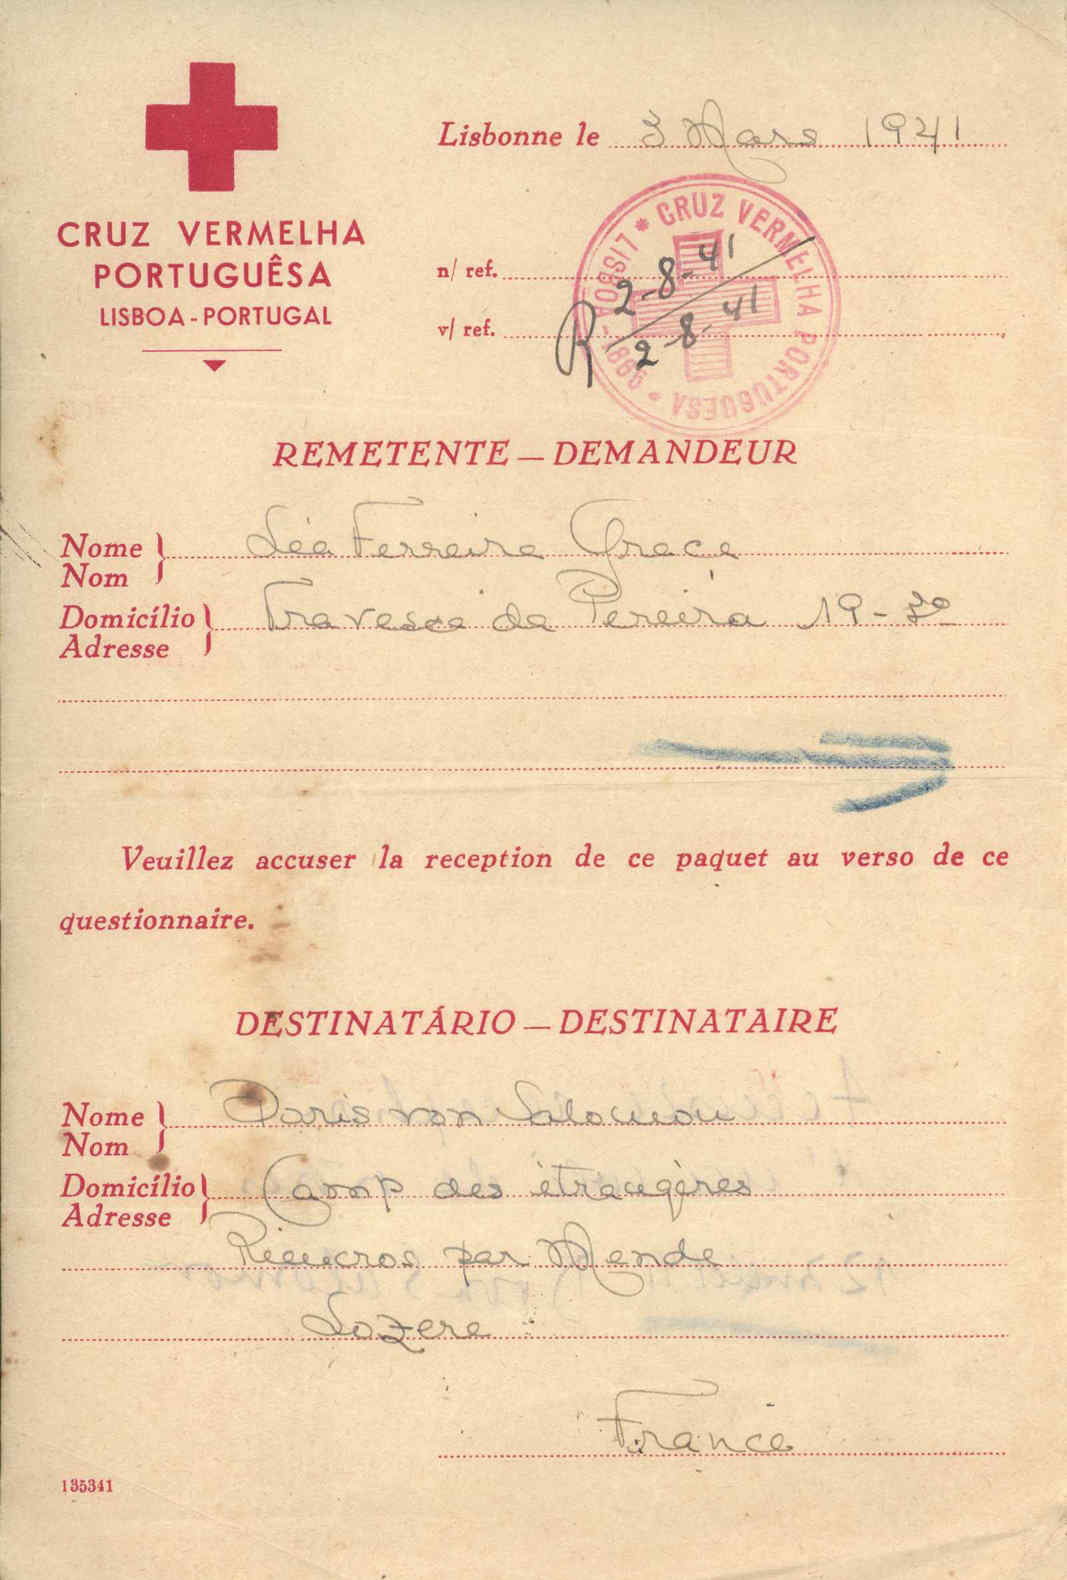 CRUZ VERMELHA
PORTUGUÊSA
LISBOA - PORTUGAL
Lisbonne le 3 Mars 1941
n/ ref.
v/ ref.
* CRUZ VERMELHA PORTUGUESA * LISBOA - 1865
R 2-8-41
2-8-41
REMETENTE — DEMANDEUR
Nome
Nom
Léa Ferreira Graça
Domicílio
Adresse
Travessa da Pereira 19 - 3º
Veuillez accuser la reception de ce paquet au verso de ce
questionnaire.
DESTINATÁRIO — DESTINATAIRE
Nome
Nom
Doris von Salomon
Domicílio
Adresse
Camp des étrangères
Rieucros par Mende
Lozere
France
135341